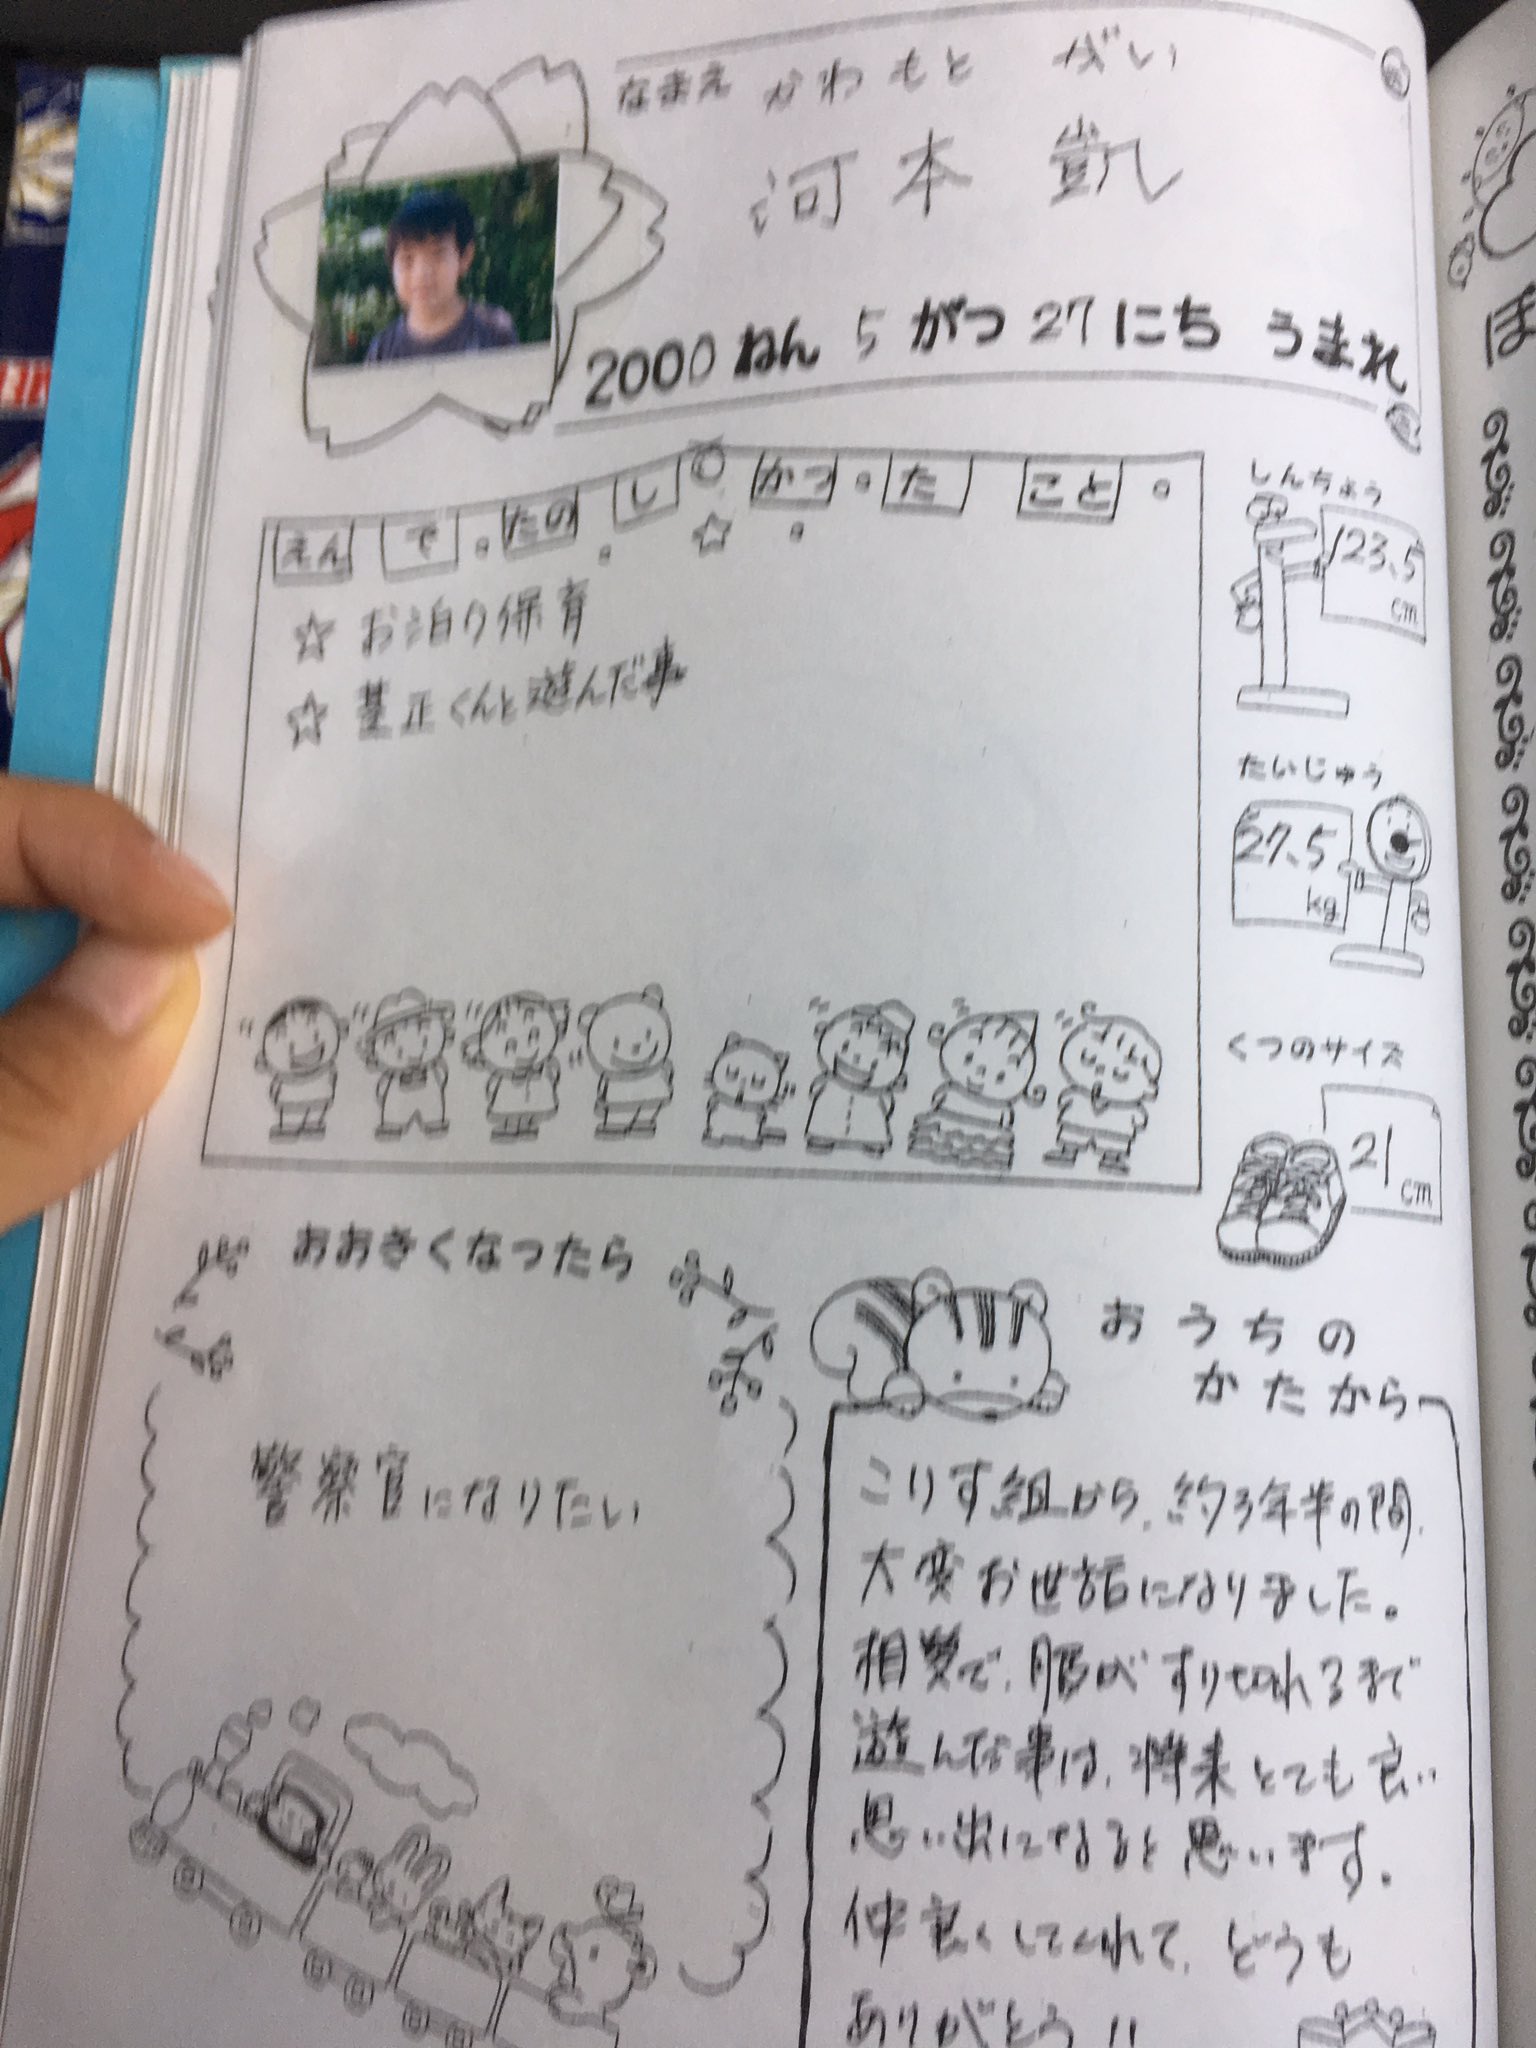 なまえ かわもと がい
河本 凱
2000 ねん 5 がつ 27 にち うまれ
えんで たのしかったこと
☆ お泊り保育
☆ 基正くんと遊んだ事
しんちょう
123.5
cm
たいじゅう
27.5
kg
くつのサイズ
21
cm
おおきくなったら
警察官になりたい
おうちの
かたから
こりす組から、約3年半の間、
大変お世話になりました。
相撲で、服がすり切れるまで
遊んだ事は、将来とても良い
思い出になると思います。
仲良くしてくれて、どうも
ありがとう!!
ほ